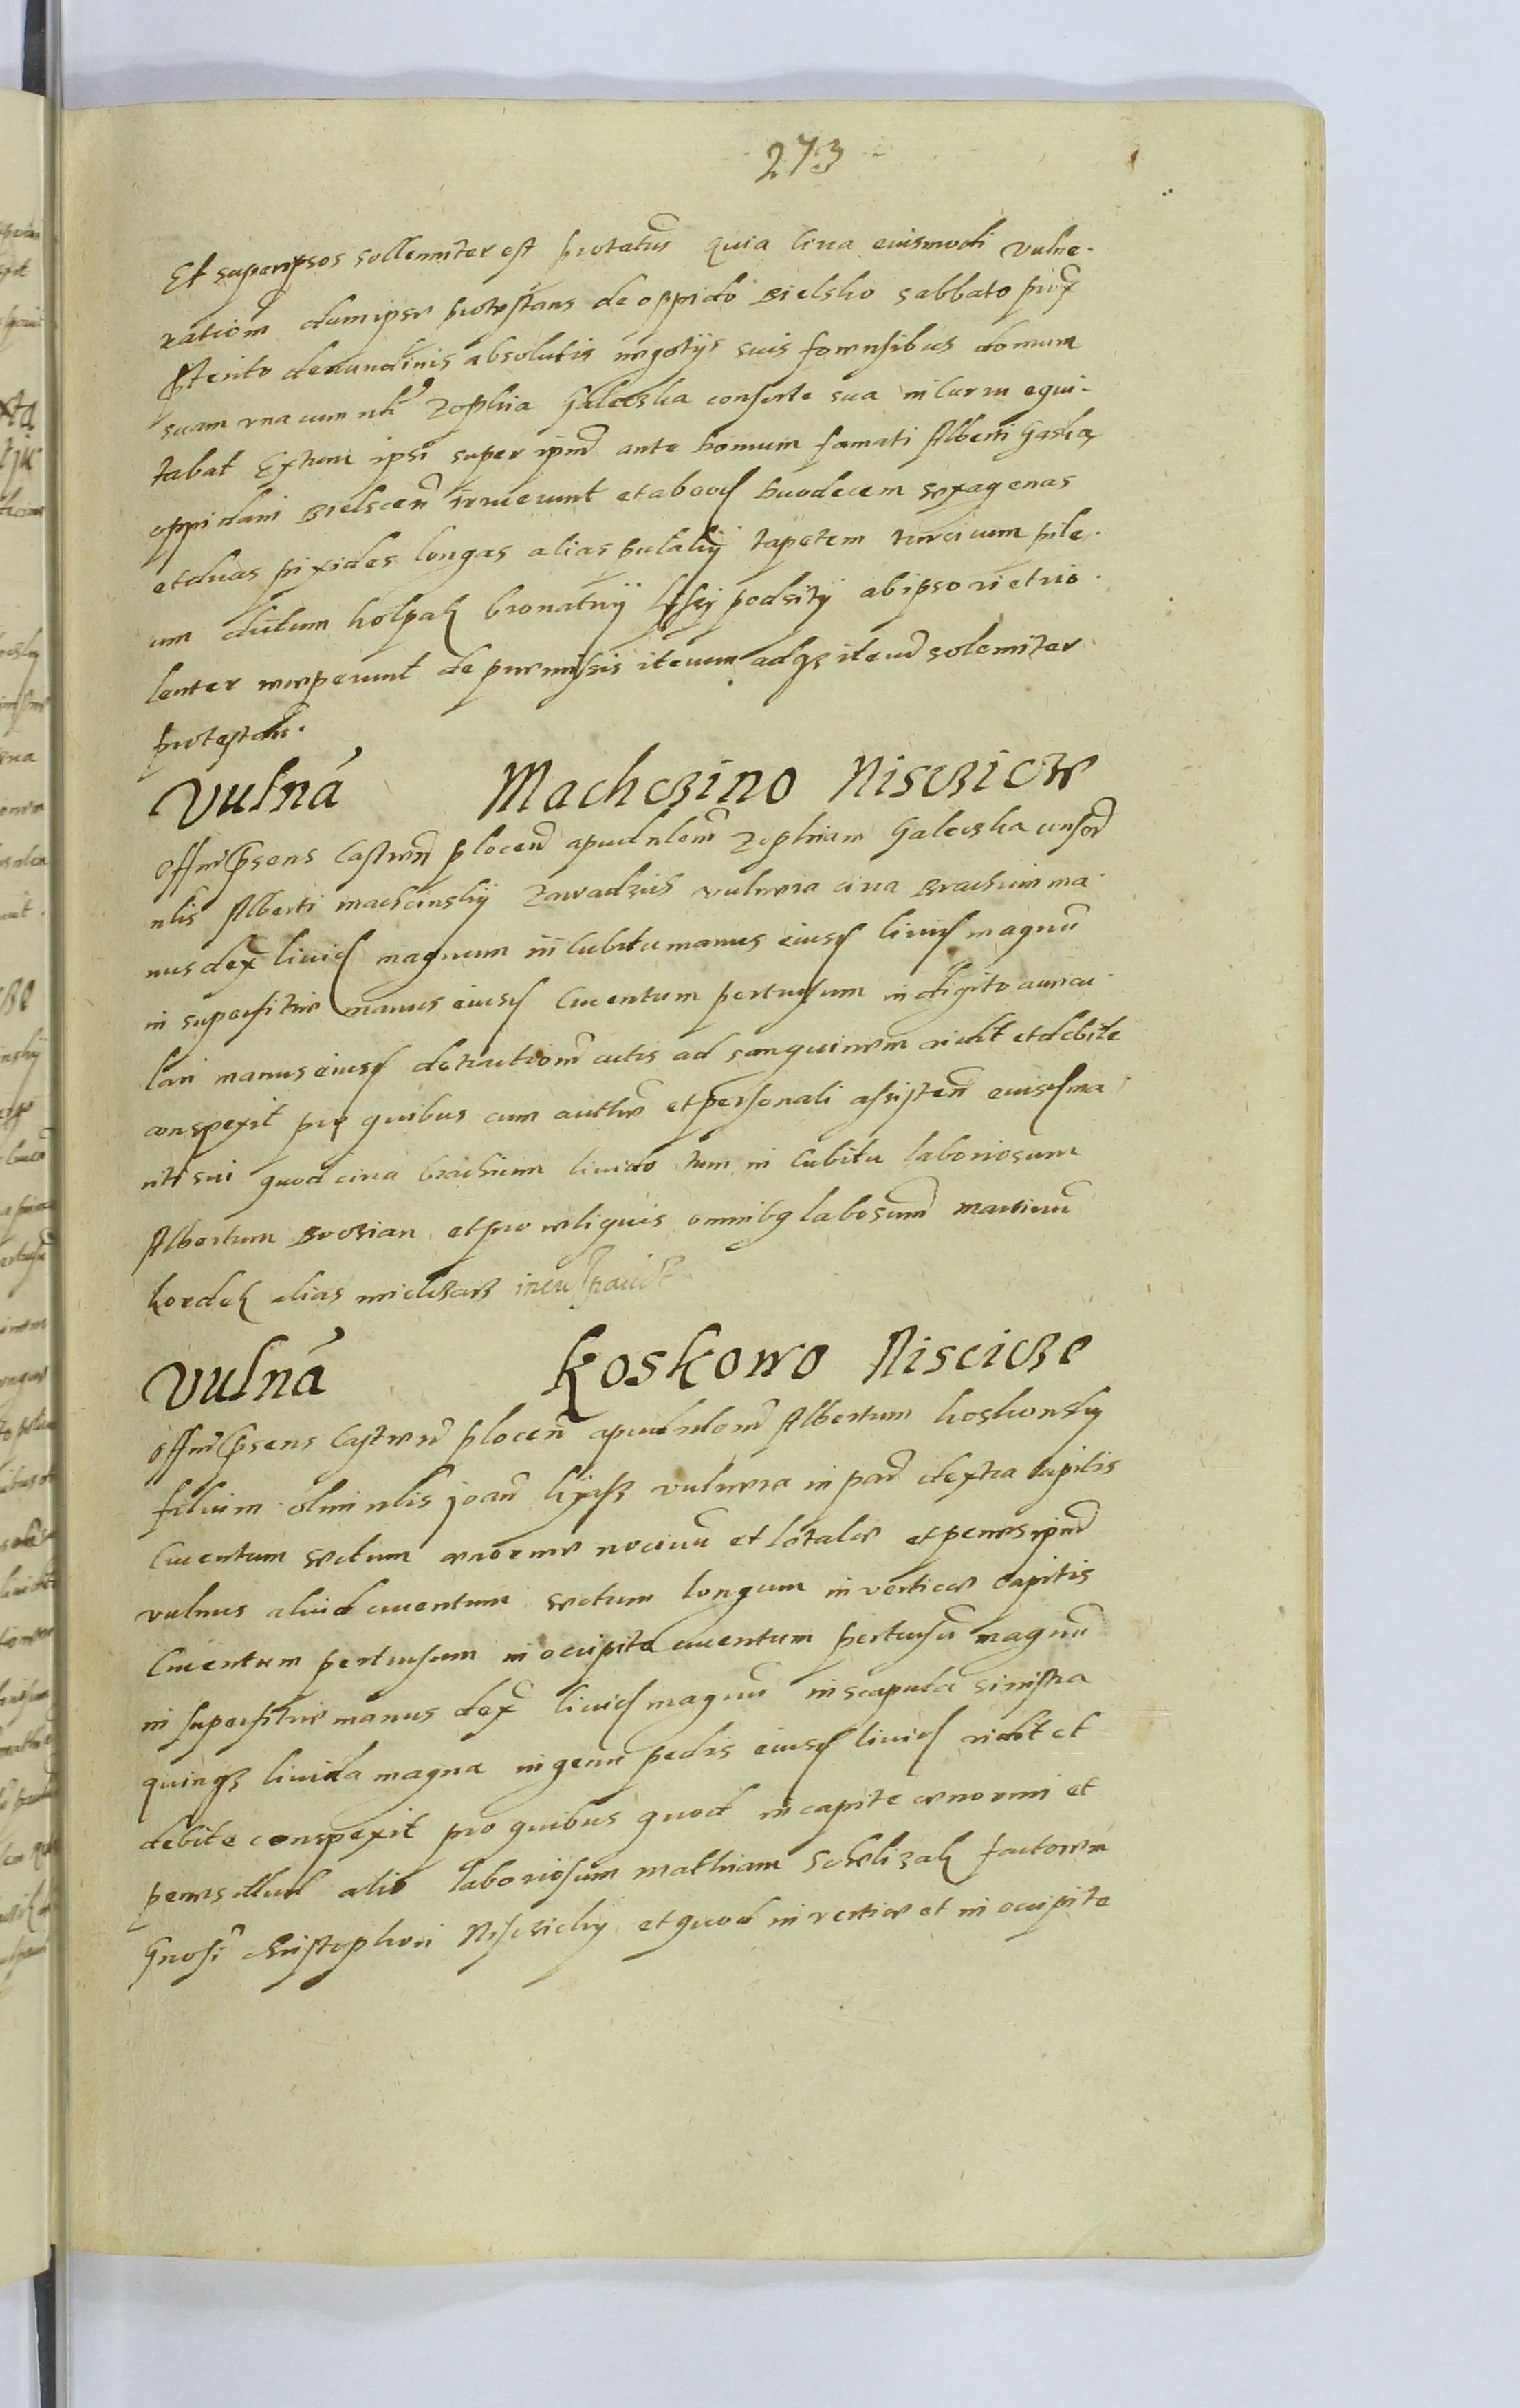 273
Et super ipsos sollenniter est protatus quia circa eiusmodi vulne-
rationem dum ipse protestans de oppido Bielsko sabbato prox
pterito de nundinis absolutis negotijs suis forensibus domum
suam vna cum nli Zophia Galeczka consorte sua in curru equi-
tabat Extunc ipsi super ipm ante domum famati Alberti Gaska
oppidani Bielscen irruerunt et ab eod duodecem sexagenas
et duas pixides longas alias pulaky tapetem turcicum pile-
um dictum kolpak bronatny podsity ab ipso vi et vio-
lenter receperunt de premissis iterum adqz iterum solemniter
protestatur.
Vulna Machczino Nisczicze
Offm psens Castren plocen apud nlem Zophiam Galeczka consor
nlis Alberti machcinsky Zawadzis vulnera circa brachium ma-
nus dex livid magnum in cubitu manus eiusd livid magnu
in superficie manus eiusd cruentum pertusum in digito auricu-
lari manus eiusd detractionem cutis ad sanguinem vidit et debite
conspexit pro quibus cum authore et personali assisten eiusd ma-
riti sui quod circa brachium livido tum in cubitu laboriosum
Albertum Brozian et pro reliquis omnibq labosum Marcinu
kordek alias inculpavit
Vulna Koskowo Niscicze
Offm psens Castren plocen apud nlem Albertum koskowsky
filium olim nlis Joan vulnera in par dextra capitis
Cruentum sectum enorme nocivu et letale et penes ipm
vulnus aliud cruentum sectum longum in vertice capitis
Cruentum pertusum in occipite cruentum pertusu magnu
in superficie manus dex livid magnu in scapula sinistra
quinqz livida magna in genu pedis eiusd livid vidit et
debite conspexit pro quibus quod in capite enormi et
penes illud alio laboriosum mathiam factorem
Gnosi Christophori Nisczicky et quod in vertice et in occipite